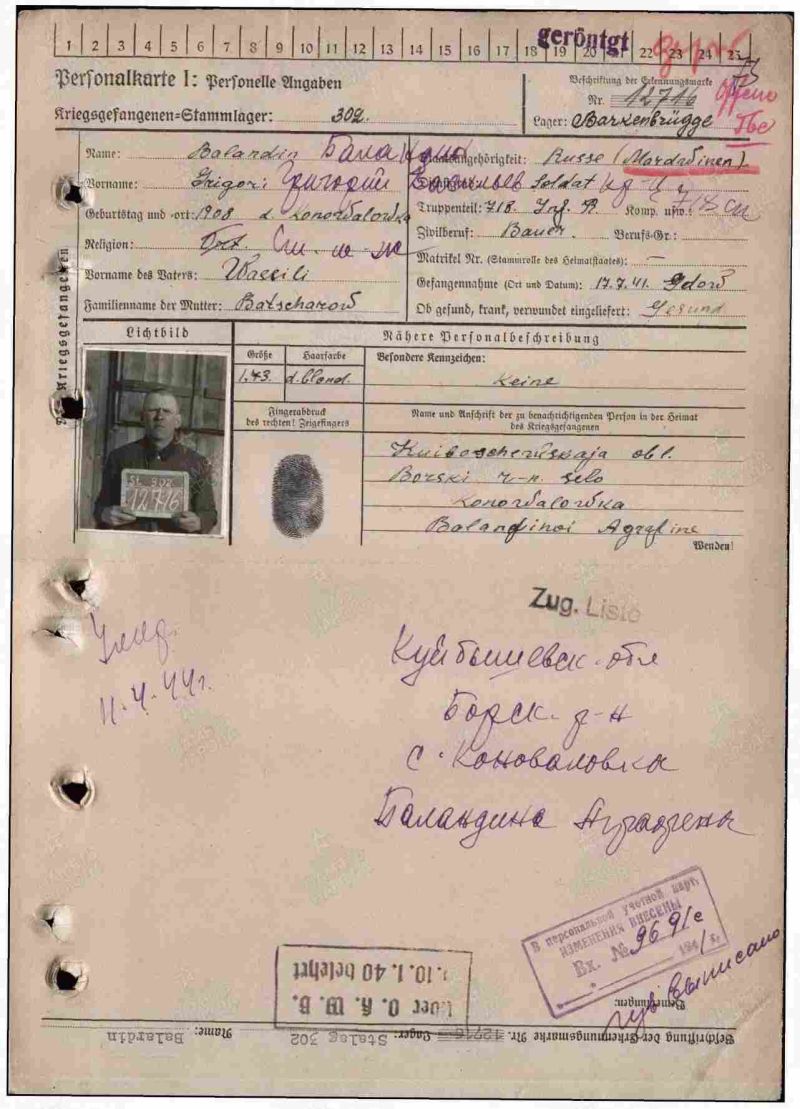 1 2 3 4 5 6 7 8 9 10 11 12 13 14 15 16 17 18 19 20 21 22 23 24 25
geröntgt
Personalkarte I: Personelle Angaben
Kriegsgefangenen=Stammlager: 302.
Beschriftung der Erkennungsmarke
Nr. 12716
Lager: Barkenbrügge
Name: Balandin
Vorname: Grigori Григорий
Geburtstag und -ort: 1908 d. Konowalowka
Religion:
Vorname des Vaters: Wassili
Familienname der Mutter: Batscharow
Staatsangehörigkeit: Russe (Mardwinen)
Dienstgrad: Soldat
Truppenteil: 718. Inf. R. Komp. usw.:
Zivilberuf: Bauer. Berufs-Gr.:
Matrikel Nr. (Stammrolle des Heimatstaates): —
Gefangennahme (Ort und Datum): 17.7.41. Gdow
Ob gesund, krank, verwundet eingeliefert: Gesund
Des Kriegsgefangenen
Lichtbild
Nähere Personalbeschreibung
Größe Haarfarbe Besondere Kennzeichen:
1.73. d. blond. Keine
Fingerabdruck
des rechten! Zeigefingers
Name und Anschrift der zu benachrichtigenden Person in der Heimat
des Kriegsgefangenen
St. 302
12716
obl.
Borski r-n. selo
Konowalowka
Balandinoi Agrafine
Wenden!
Zug. Liste
11.4.44г.
Куйбышевск. обл
Борск. р-н
с. Коноваловка
Баландина Аграфена
В персональной учетной карт.
ИЗМЕНЕНИЯ ВНЕСЕНЫ
Вх. № 9691с
194 г.
выписано
Bemerkungen:
Über O. K. W. B.
v. 10.1.40 belehrt
Beschriftung der Erkennungsmarke Nr. 12716 Lager: Stalag 302 Name: Balardin